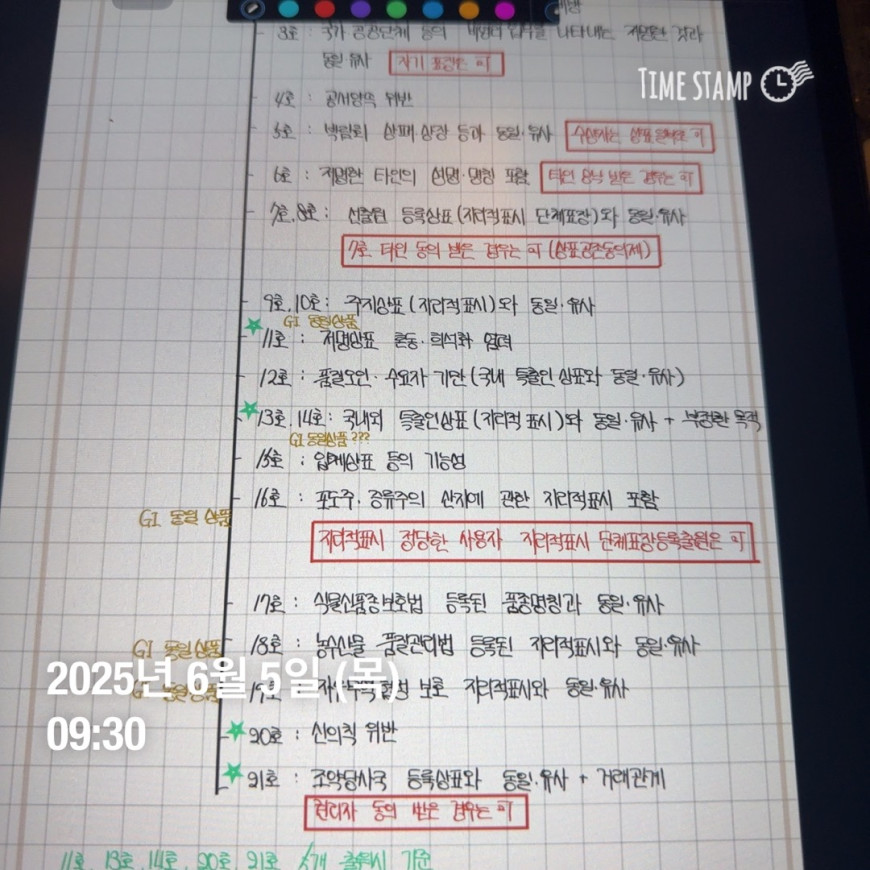 3호 : 국가·공공단체 등의 나타내는 저명한 것과
동일·유사 자기 표장은 可
TIME STAMP
4호 : 공서양속 위반
5호 : 박람회 상패·상장 등과 동일·유사 수상자는 상표 일부로 可
6호 : 저명한 타인의 성명·명칭 포함 타인 승낙 받은 경우는 可
7호, 8호 : 선출원 등록상표 (지리적표시 단체표장)와 동일·유사
7호 타인 동의 받은 경우는 可 (상표공존동의제)
9호, 10호 : 주지상표 (지리적표시)와 동일·유사
GI 동일상품
11호 : 저명상표 혼동·희석화 염려
12호 : 품질오인·수요자 기만 (국내 특출인 상표와 동일·유사)
13호, 14호 : 국내외 특출인상표 (지리적 표시)와 동일·유사 + 부정한 목적
GI 동일상품 ???
15호 : 입체상표 등의 기능성
16호 : 포도주·증류주의 산지에 관한 지리적표시 포함
GI 동일 상품
지리적표시 정당한 사용자 지리적표시 단체표장등록출원은 可
17호 : 식물신품종보호법 등록된 품종명칭과 동일·유사
18호 : 농수산물 품질관리법 등록된 지리적표시와 동일·유사
GI 동일 상품
2025년 6월 5일 (목)
19호 : 보호 지리적표시와 동일·유사
09:30
20호 : 신의칙 위반
21호 : 조약당사국 등록상표와 동일·유사 + 거래관계
권리자 동의 받은 경우는 可
11호, 13호, 14호, 20호, 21호 5개 출원시 기준